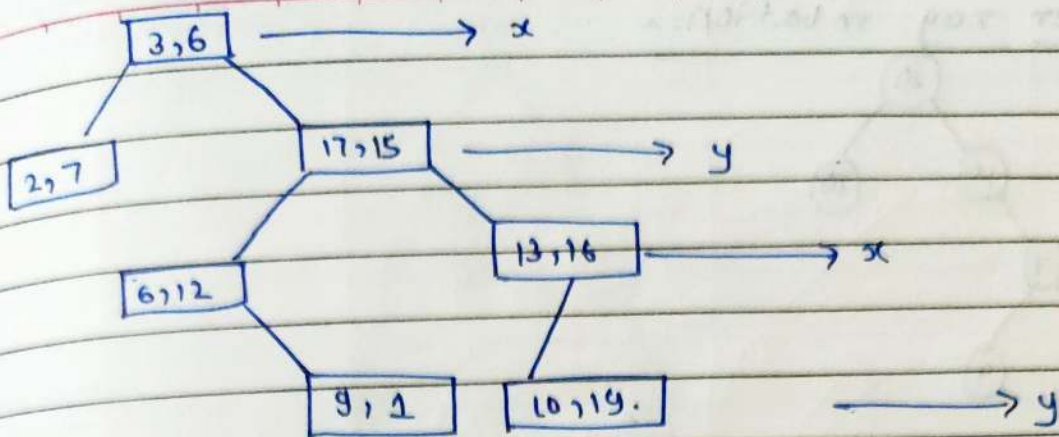 3,6 → x
2,7
17,15 → y
6,12
13,16 → x
9,1
10,19.
→ y